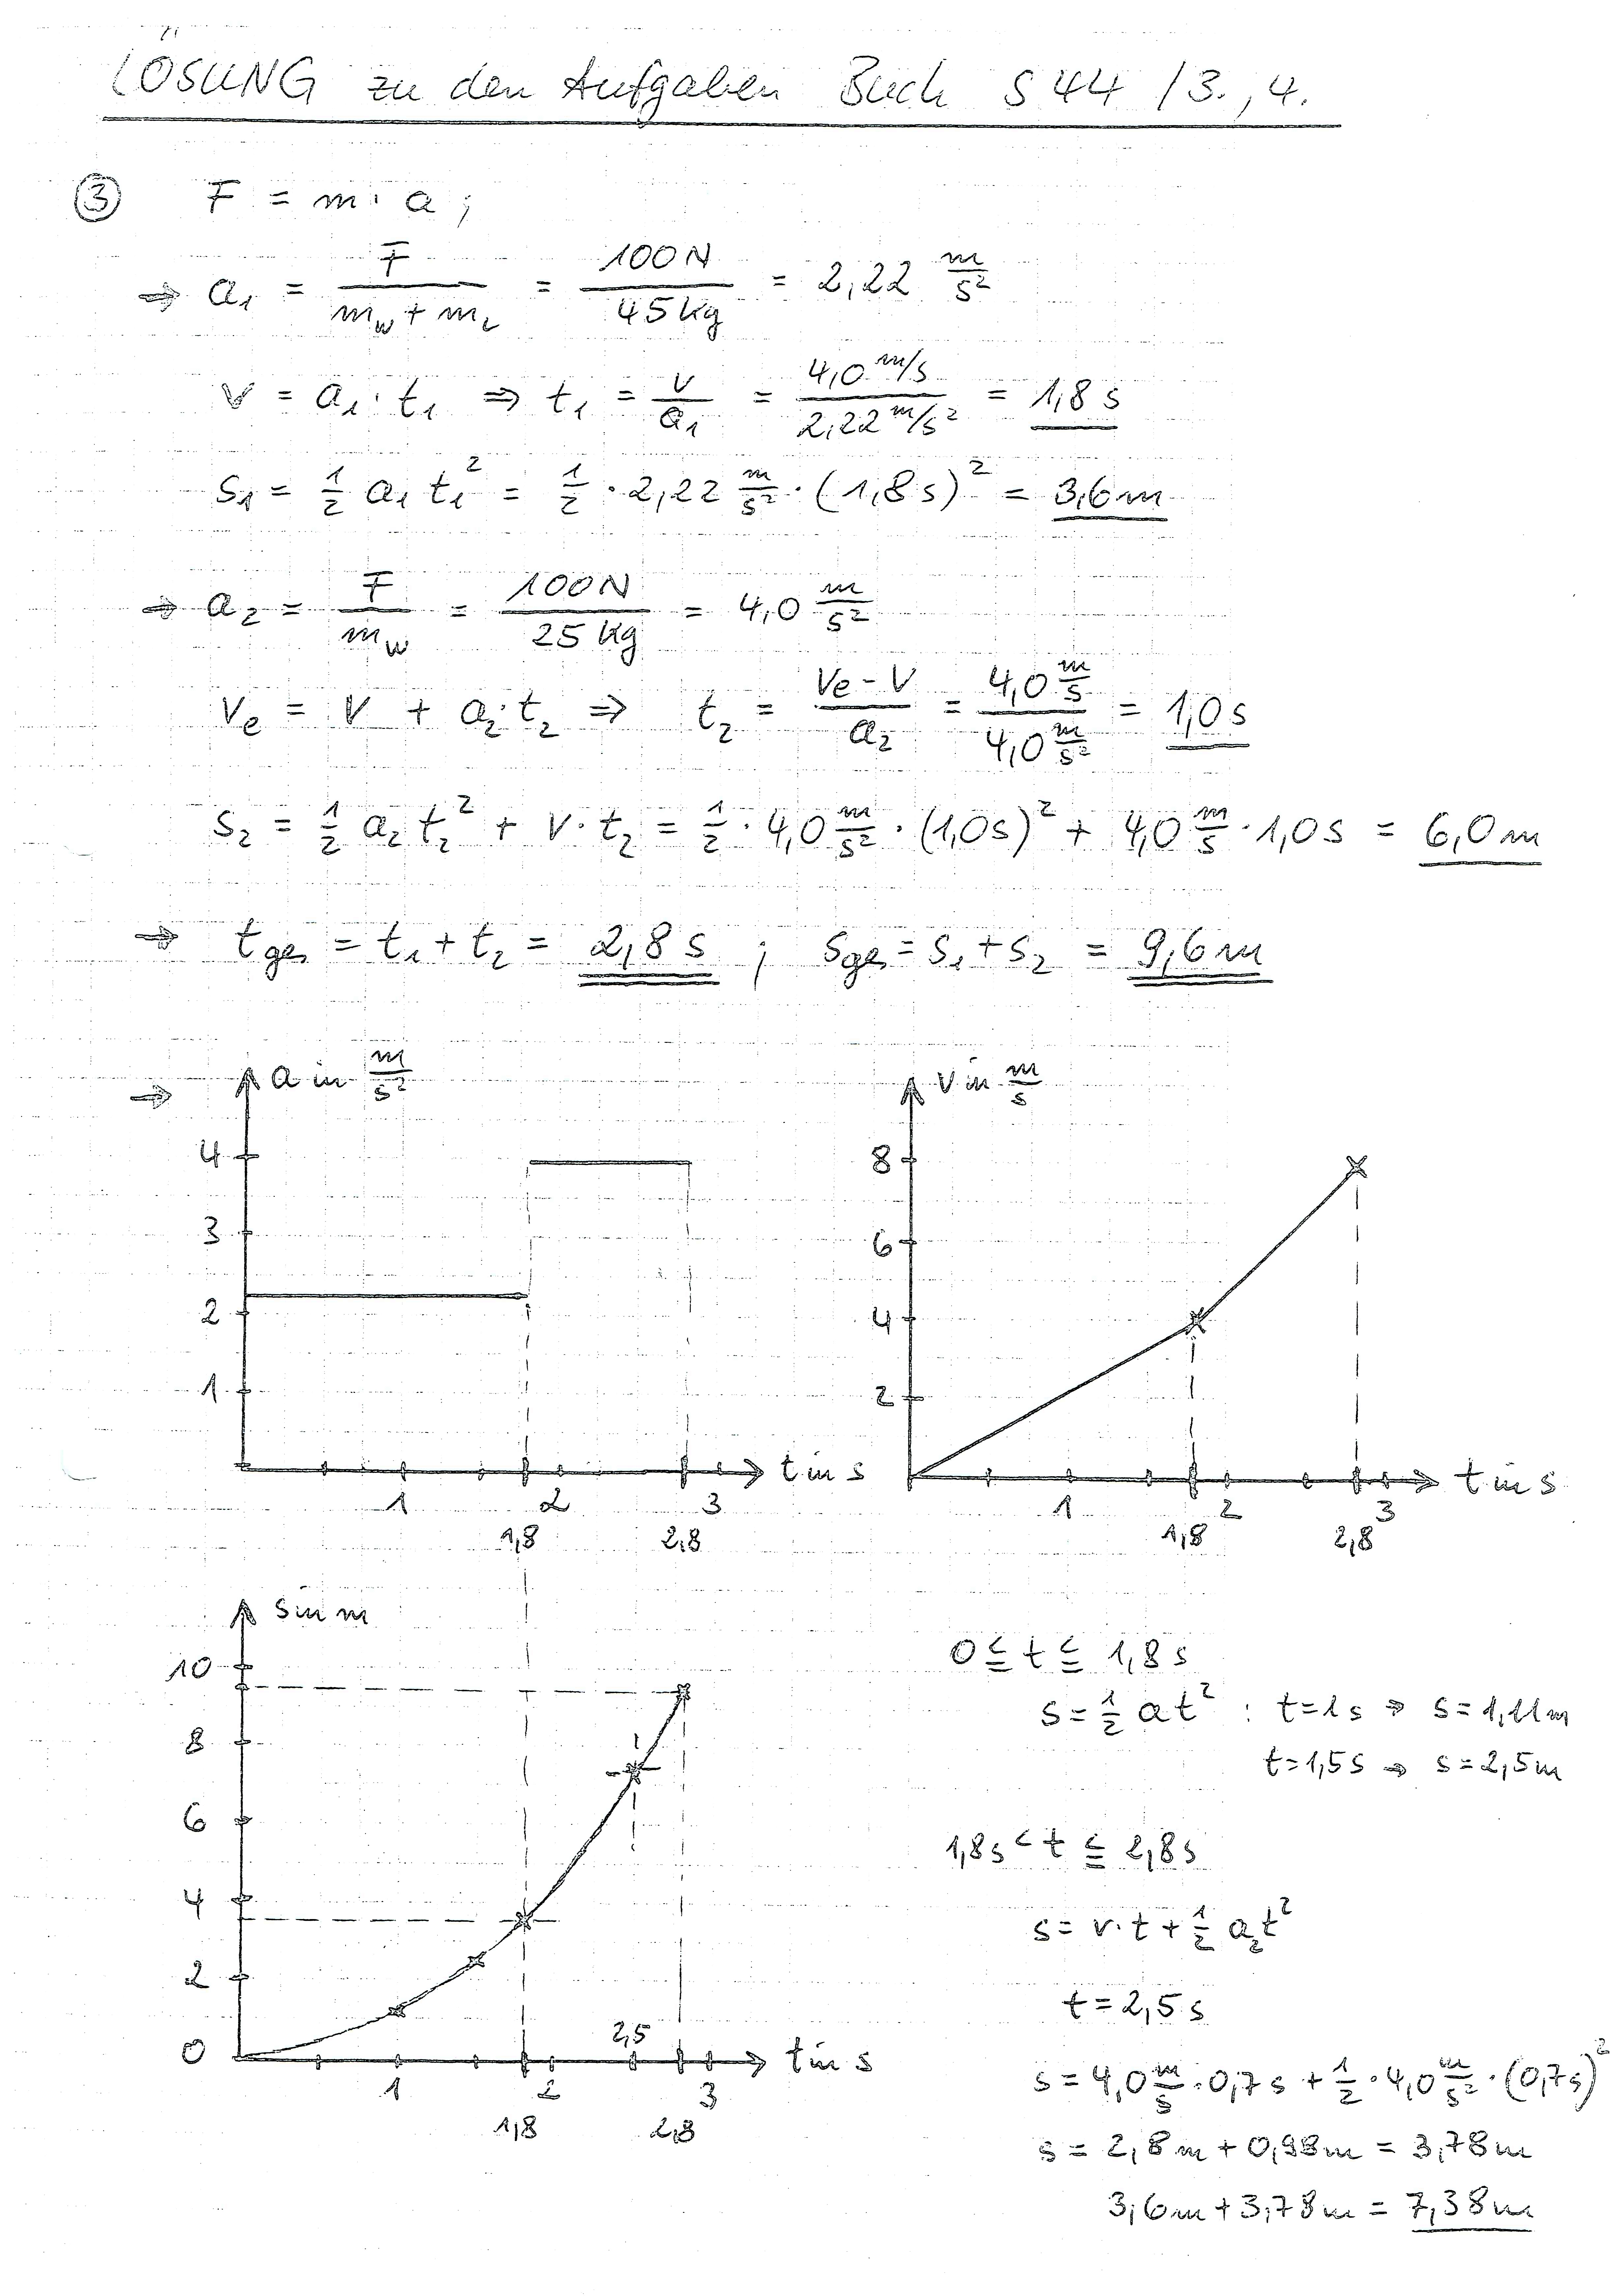 LÖSUNG zu den Aufgaben Buch S 44 / 3., 4.
③ F = m · a ;
⇒ a₁ = F / (m_w + m_L) = 100 N / 45 kg = 2,22 m/s²
v = a₁ · t₁ ⇒ t₁ = v / a₁ = 4,0 m/s / 2,22 m/s² = 1,8 s
s₁ = ½ a₁ t₁² = ½ · 2,22 m/s² · (1,8 s)² = 3,6 m
⇒ a₂ = F / m_w = 100 N / 25 kg = 4,0 m/s²
v_e = v + a₂ · t₂ ⇒ t₂ = (v_e - v) / a₂ = 4,0 m/s / 4,0 m/s² = 1,0 s
s₂ = ½ a₂ t₂² + v · t₂ = ½ · 4,0 m/s² · (1,0 s)² + 4,0 m/s · 1,0 s = 6,0 m
⇒ t_ges = t₁ + t₂ = 2,8 s ; s_ges = s₁ + s₂ = 9,6 m
⇒ a in m/s²
4
3
2
1
1 2 3 t in s
1,8 2,8
v in m/s
8
6
4
2
1 2 3 t in s
1,8 2,8
s in m
10
8
6
4
2
0
2,5
1 2 3 t in s
1,8 2,8
0 ≦ t ≦ 1,8 s
s = ½ a t² : t = 1 s ⇒ s = 1,11 m
t = 1,5 s ⇒ s = 2,5 m
1,8 s < t ≦ 2,8 s
s = v · t + ½ a₂ t²
t = 2,5 s
s = 4,0 m/s · 0,7 s + ½ · 4,0 m/s² · (0,7 s)²
s = 2,8 m + 0,98 m = 3,78 m
3,6 m + 3,78 m = 7,38 m